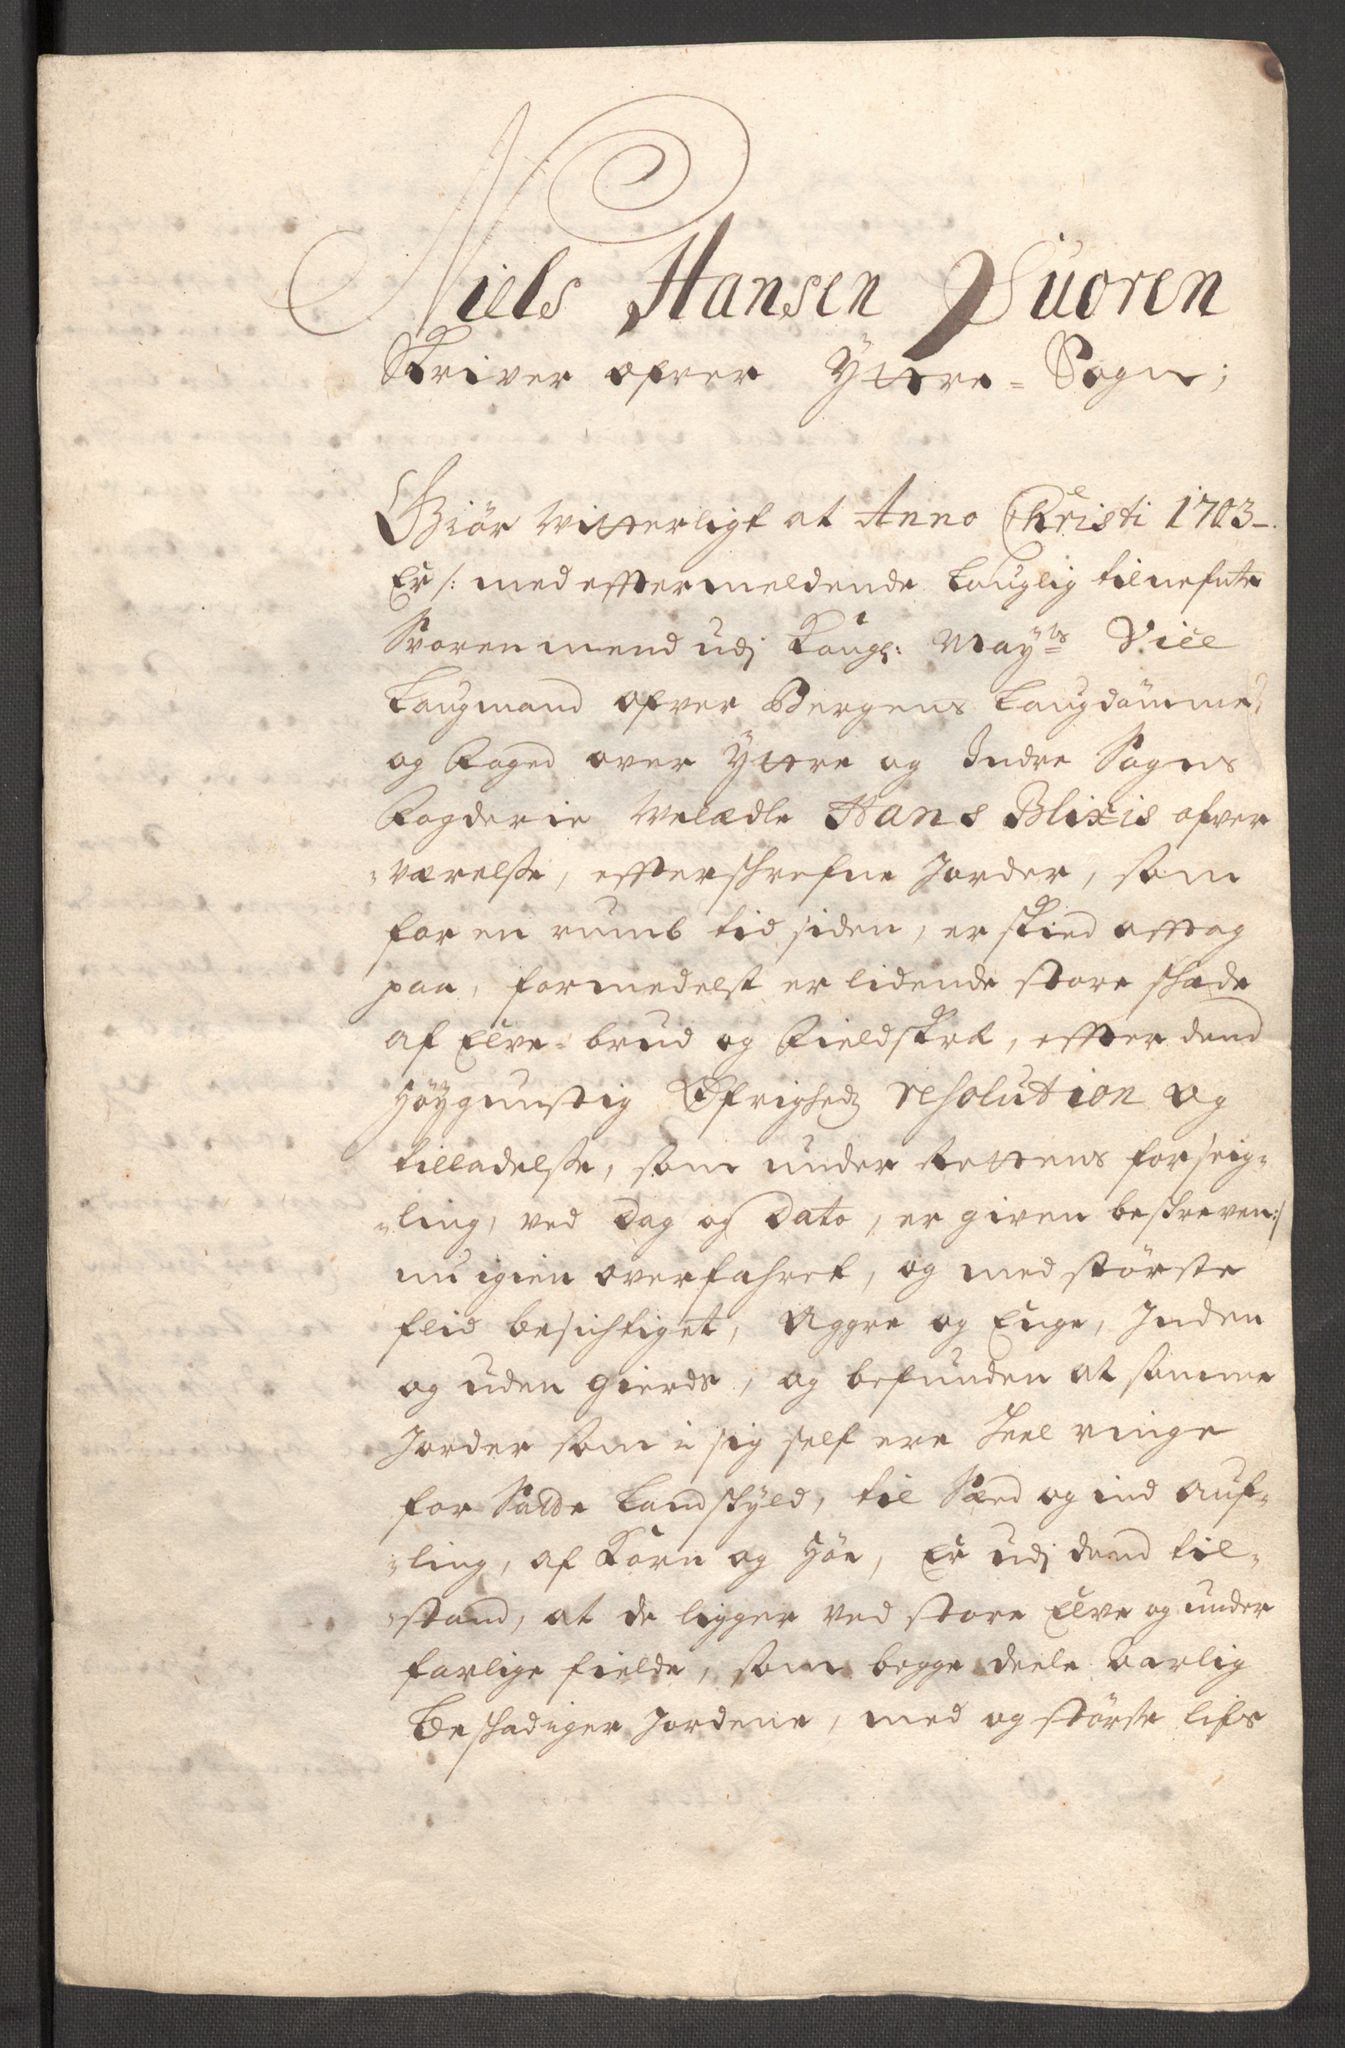 Niels Hansen Suoren
Skriver ofver Yttre- Sogn;
Giör Vitterligt at Anno Christi 1703-
Er /: med efftermeldende Lauglig tilnefnte
Svorenmend udj Kongl: Mayts Vice
Laugmand ofver Bergens Laugdömme,
og Foged over Yttre og Indre Sogns
Fogderie Velædle Hans Blixis ofver
-værelsse, effterschrefne Jorder, som
for en rumb tid siden, er skied afftag
paa, formedelst er lidende store schade
af Elve-brud og Fieldskred, effter dend
Höygunstig Öfrigheds resolution og
tilladelsse, som under Rettens forseig-
-ling, ved Dag og Dato, er given beskreven:/
nu igien overfahret, og med störste
flid besichtiget, Aggre og Enge, Inden
og uden gierds, og befunden at samme
Jorder som i sig self ere heel ringe
for Sadde Landskyld, til Sæd og ind auf-
-ling, af Korn og Höe, Er udj dend til-
-stand, at de ligger ved store Elve og under
farlige fielde, som begge deele aarlig
beschadiger Jordene, med og störste lifs